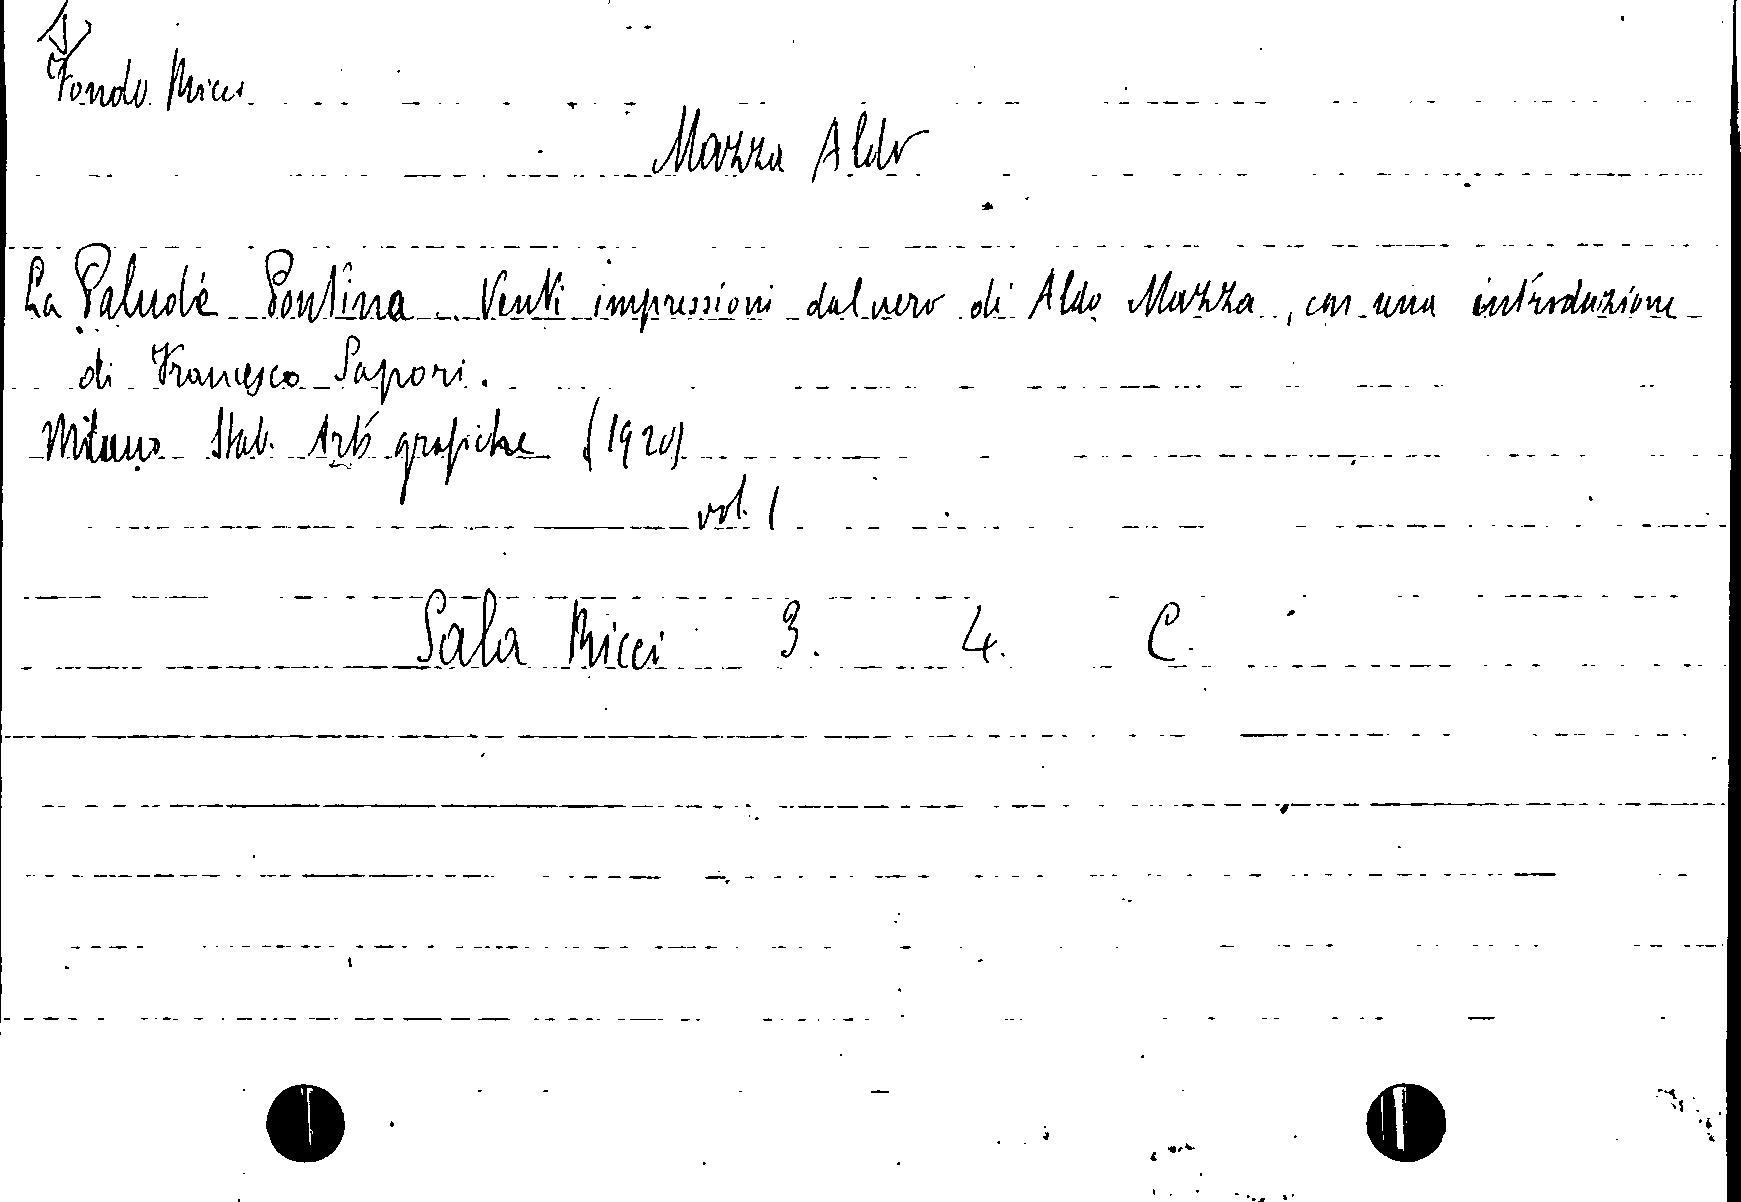 Fondo Ricci
Mazza Aldo
La Palude Pontina. Venti impressioni dal vero di Aldo Mazza, con una introduzione
di Francesco Sapori.
Milano Stab. Arti grafiche (1920)
vol. 1
Sala Ricci 3. 4. C.